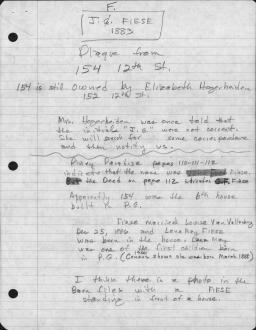 F.
J.G. FIESE
1883
Plaque from
154 12th St.
154 is still owned by Elizabeth Hagerheiden
152 12th St.
Mrs. Hagerheiden was once told that
the initials "J.G." were not correct.
She will search for some correspondence
and then notify us.
Piney Paradise pages 110-111-112
indicate that the name was Fiese.
But the Deed on page 112 Fiese
Apparently 154 was the 6th house
built in P.G.
Fiese married Louise Van
Dec 25, 1886 and Lena May Fiese
was born in the house. Lena May
was one of the first children born
in P.G. (Census shows she was born March 1888)
I think there is a photo in the
Barn files with a FIESE
standing in front of a house.